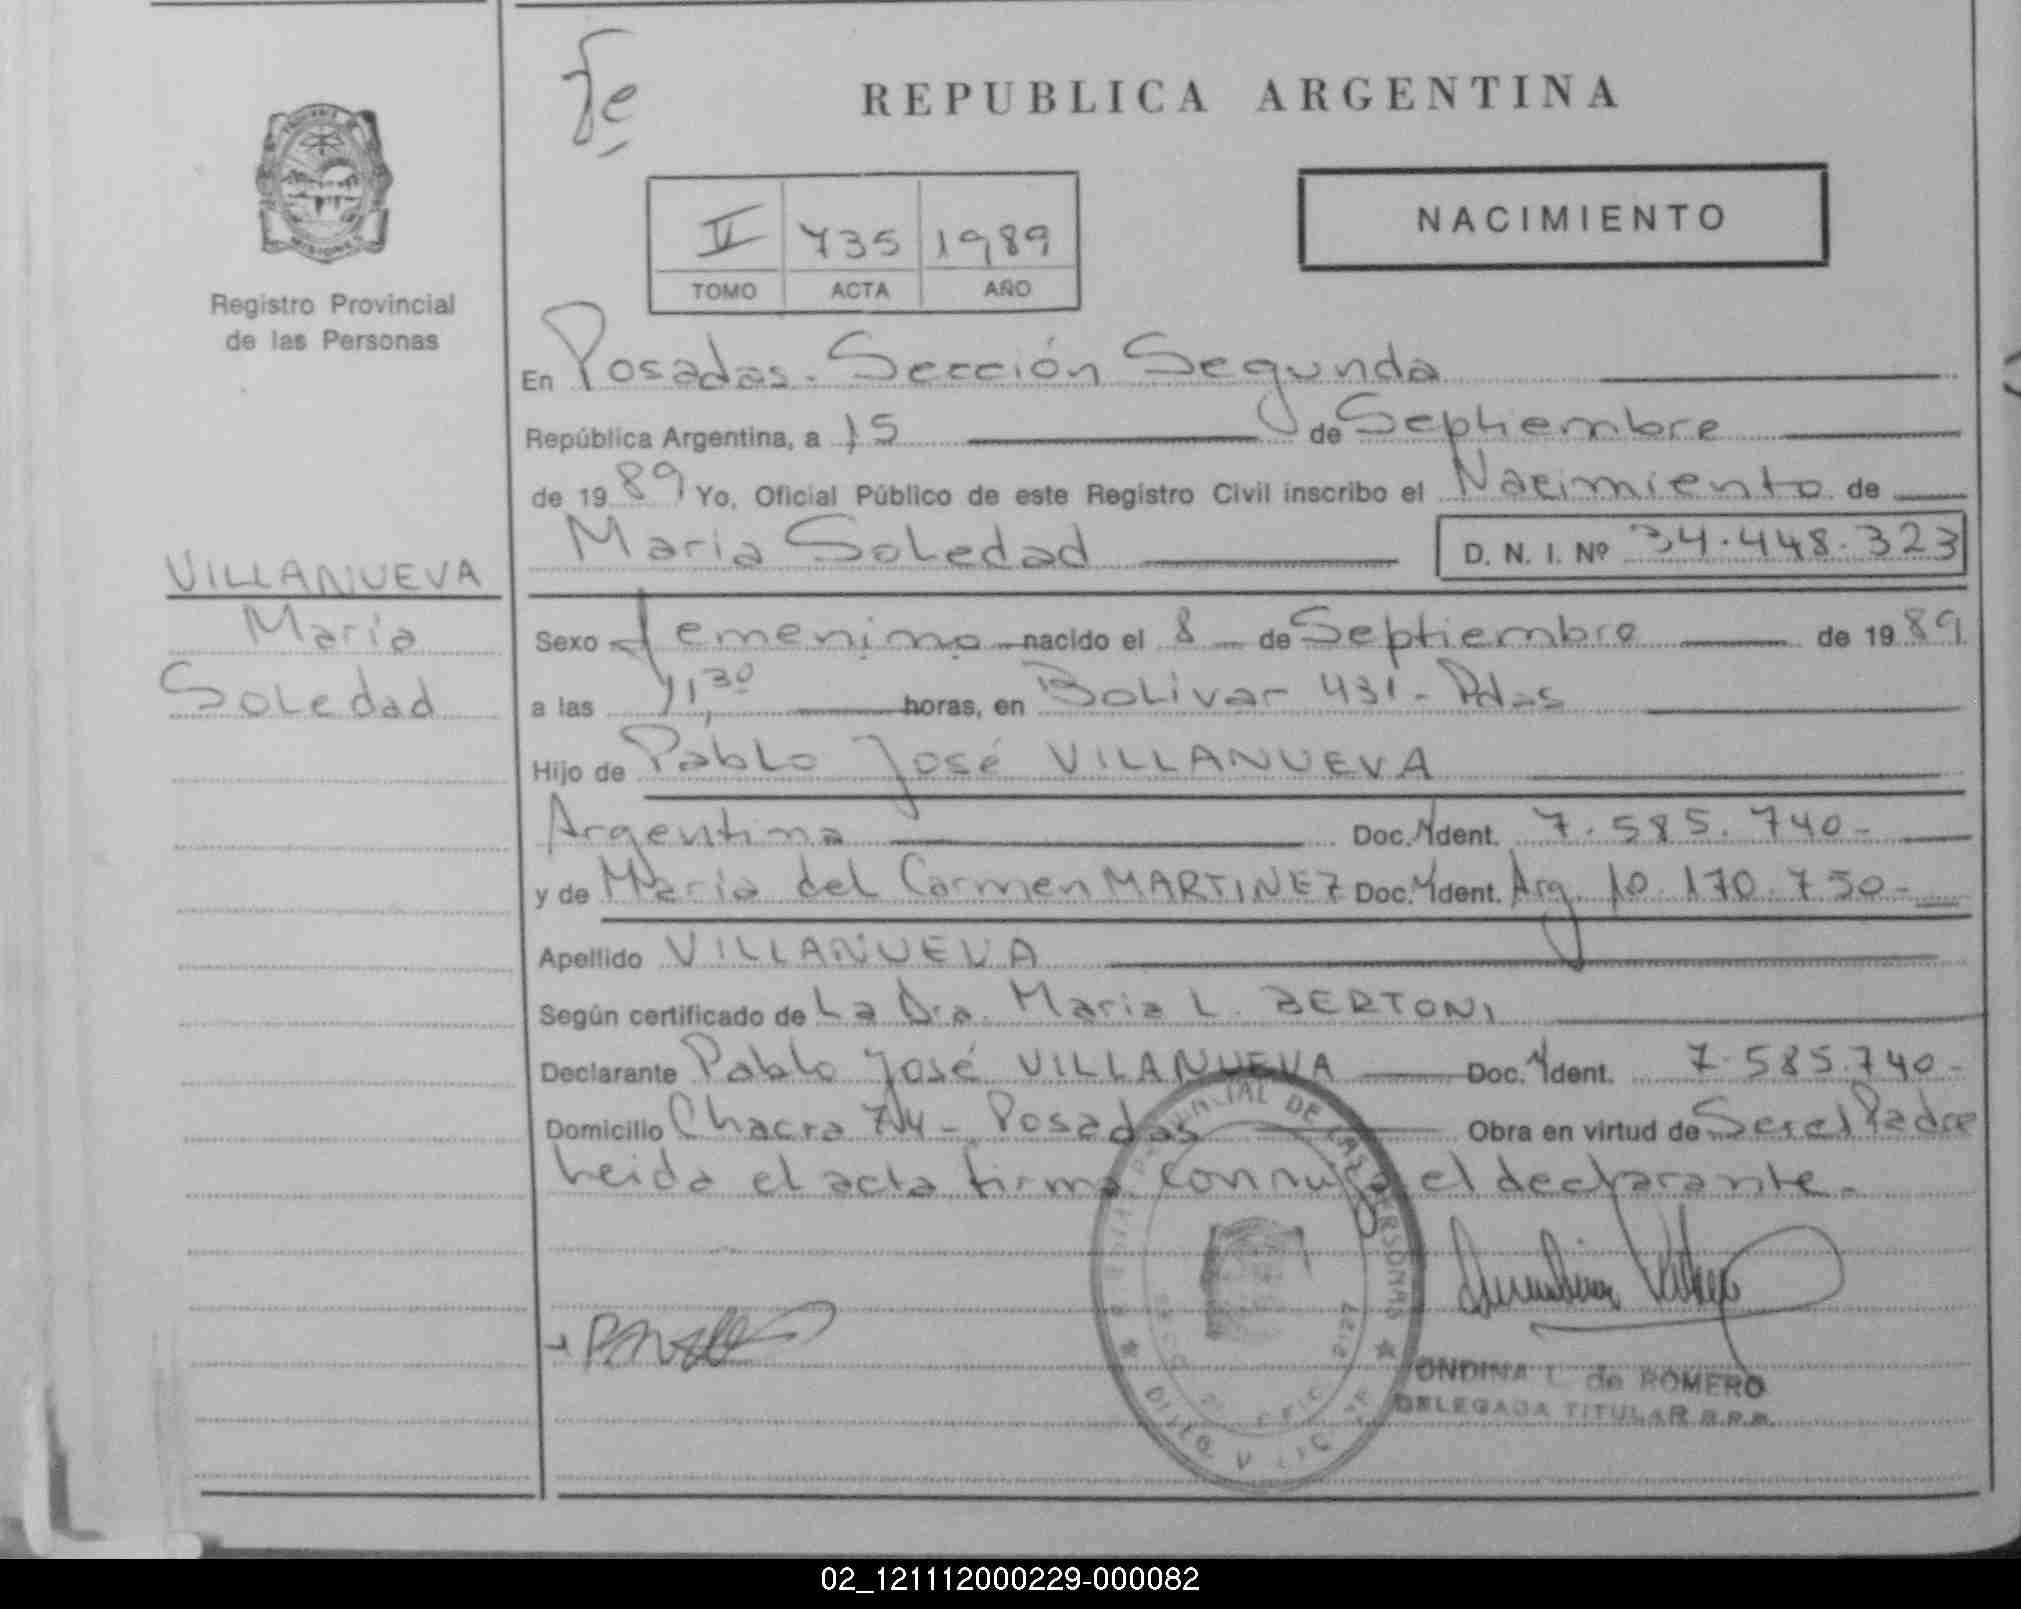 Fe
REPUBLICA ARGENTINA
NACIMIENTO
II 735 1989
TOMO ACTA AÑO
Registro Provincial
de las Personas
En Posadas. Sección Segunda
República Argentina, a 15 de Septiembre
de 1989 Yo, Oficial Público de este Registro Civil inscribo el Nacimiento de
María Soledad D. N. I. Nº 34.448.323
VILLANUEVA
María
Soledad
Sexo femenino nacido el 8 de Septiembre de 1989
a las 11,30 horas, en Bolivar 431 - Pdas
Hijo de Pablo José VILLANUEVA
Argentina Doc. Ident. 7.585.740-
y de María del Carmen MARTINEZ Doc. Ident. Arg. 10.170.750-
Apellido VILLANUEVA
Según certificado de La Dra. Maria L. BERTONI
Declarante Pablo José VILLANUEVA Doc. Ident. 7.585.740-
Domicilio Chacra 74 - Posadas Obra en virtud de Ser el Padre
Leida el acta firma conmigo el declarante.
ONDINA L. de ROMERO
DELEGADA TITULAR R.P.P.
02_121112000229-000082